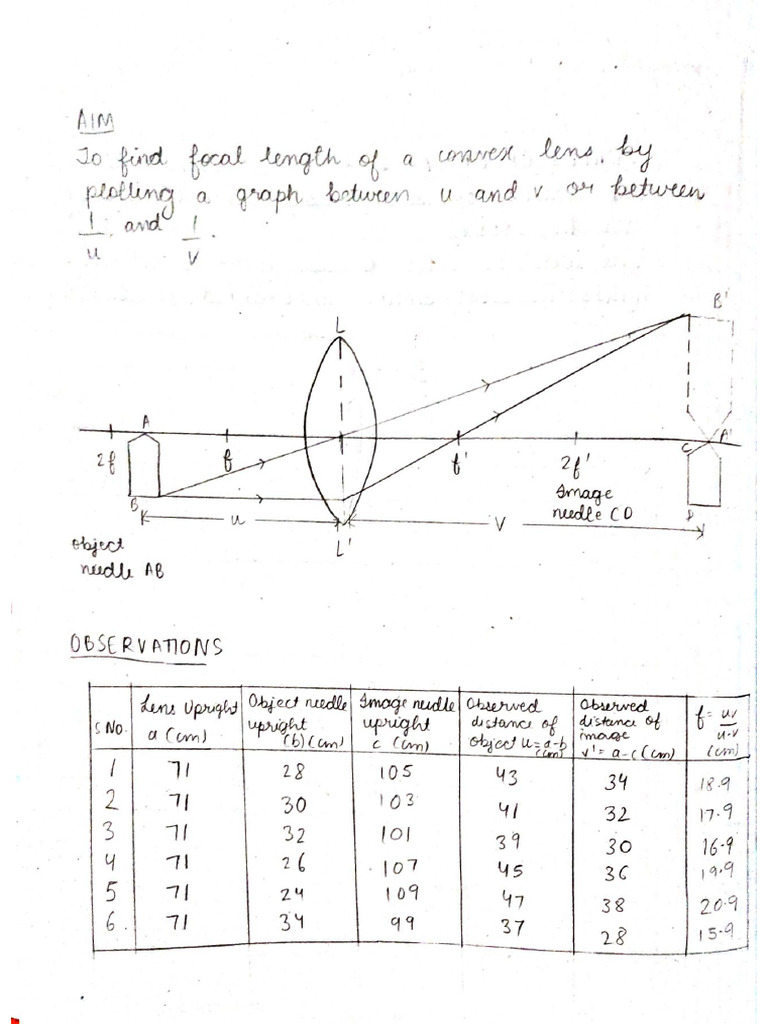 AIM
To find focal length of a convex lens, by
plotting a graph between u and v or between
1/u and 1/v.
L
B'
A
2f
f
f'
2f'
C
A'
B
u
v
Image
needle CD
D
L'
Object
needle AB
OBSERVATIONS
S No. | Lens Upright a (cm) | Object needle upright (b) (cm) | Image needle upright c (cm) | Observed distance of object u = a-b (cm) | Observed distance of image v' = a-c (cm) | f = uv/u-v (cm)
1 | 71 | 28 | 105 | 43 | 34 | 18.9
2 | 71 | 30 | 103 | 41 | 32 | 17.9
3 | 71 | 32 | 101 | 39 | 30 | 16.9
4 | 71 | 26 | 107 | 45 | 36 | 19.9
5 | 71 | 24 | 109 | 47 | 38 | 20.9
6. | 71 | 34 | 99 | 37 | 28 | 15.9